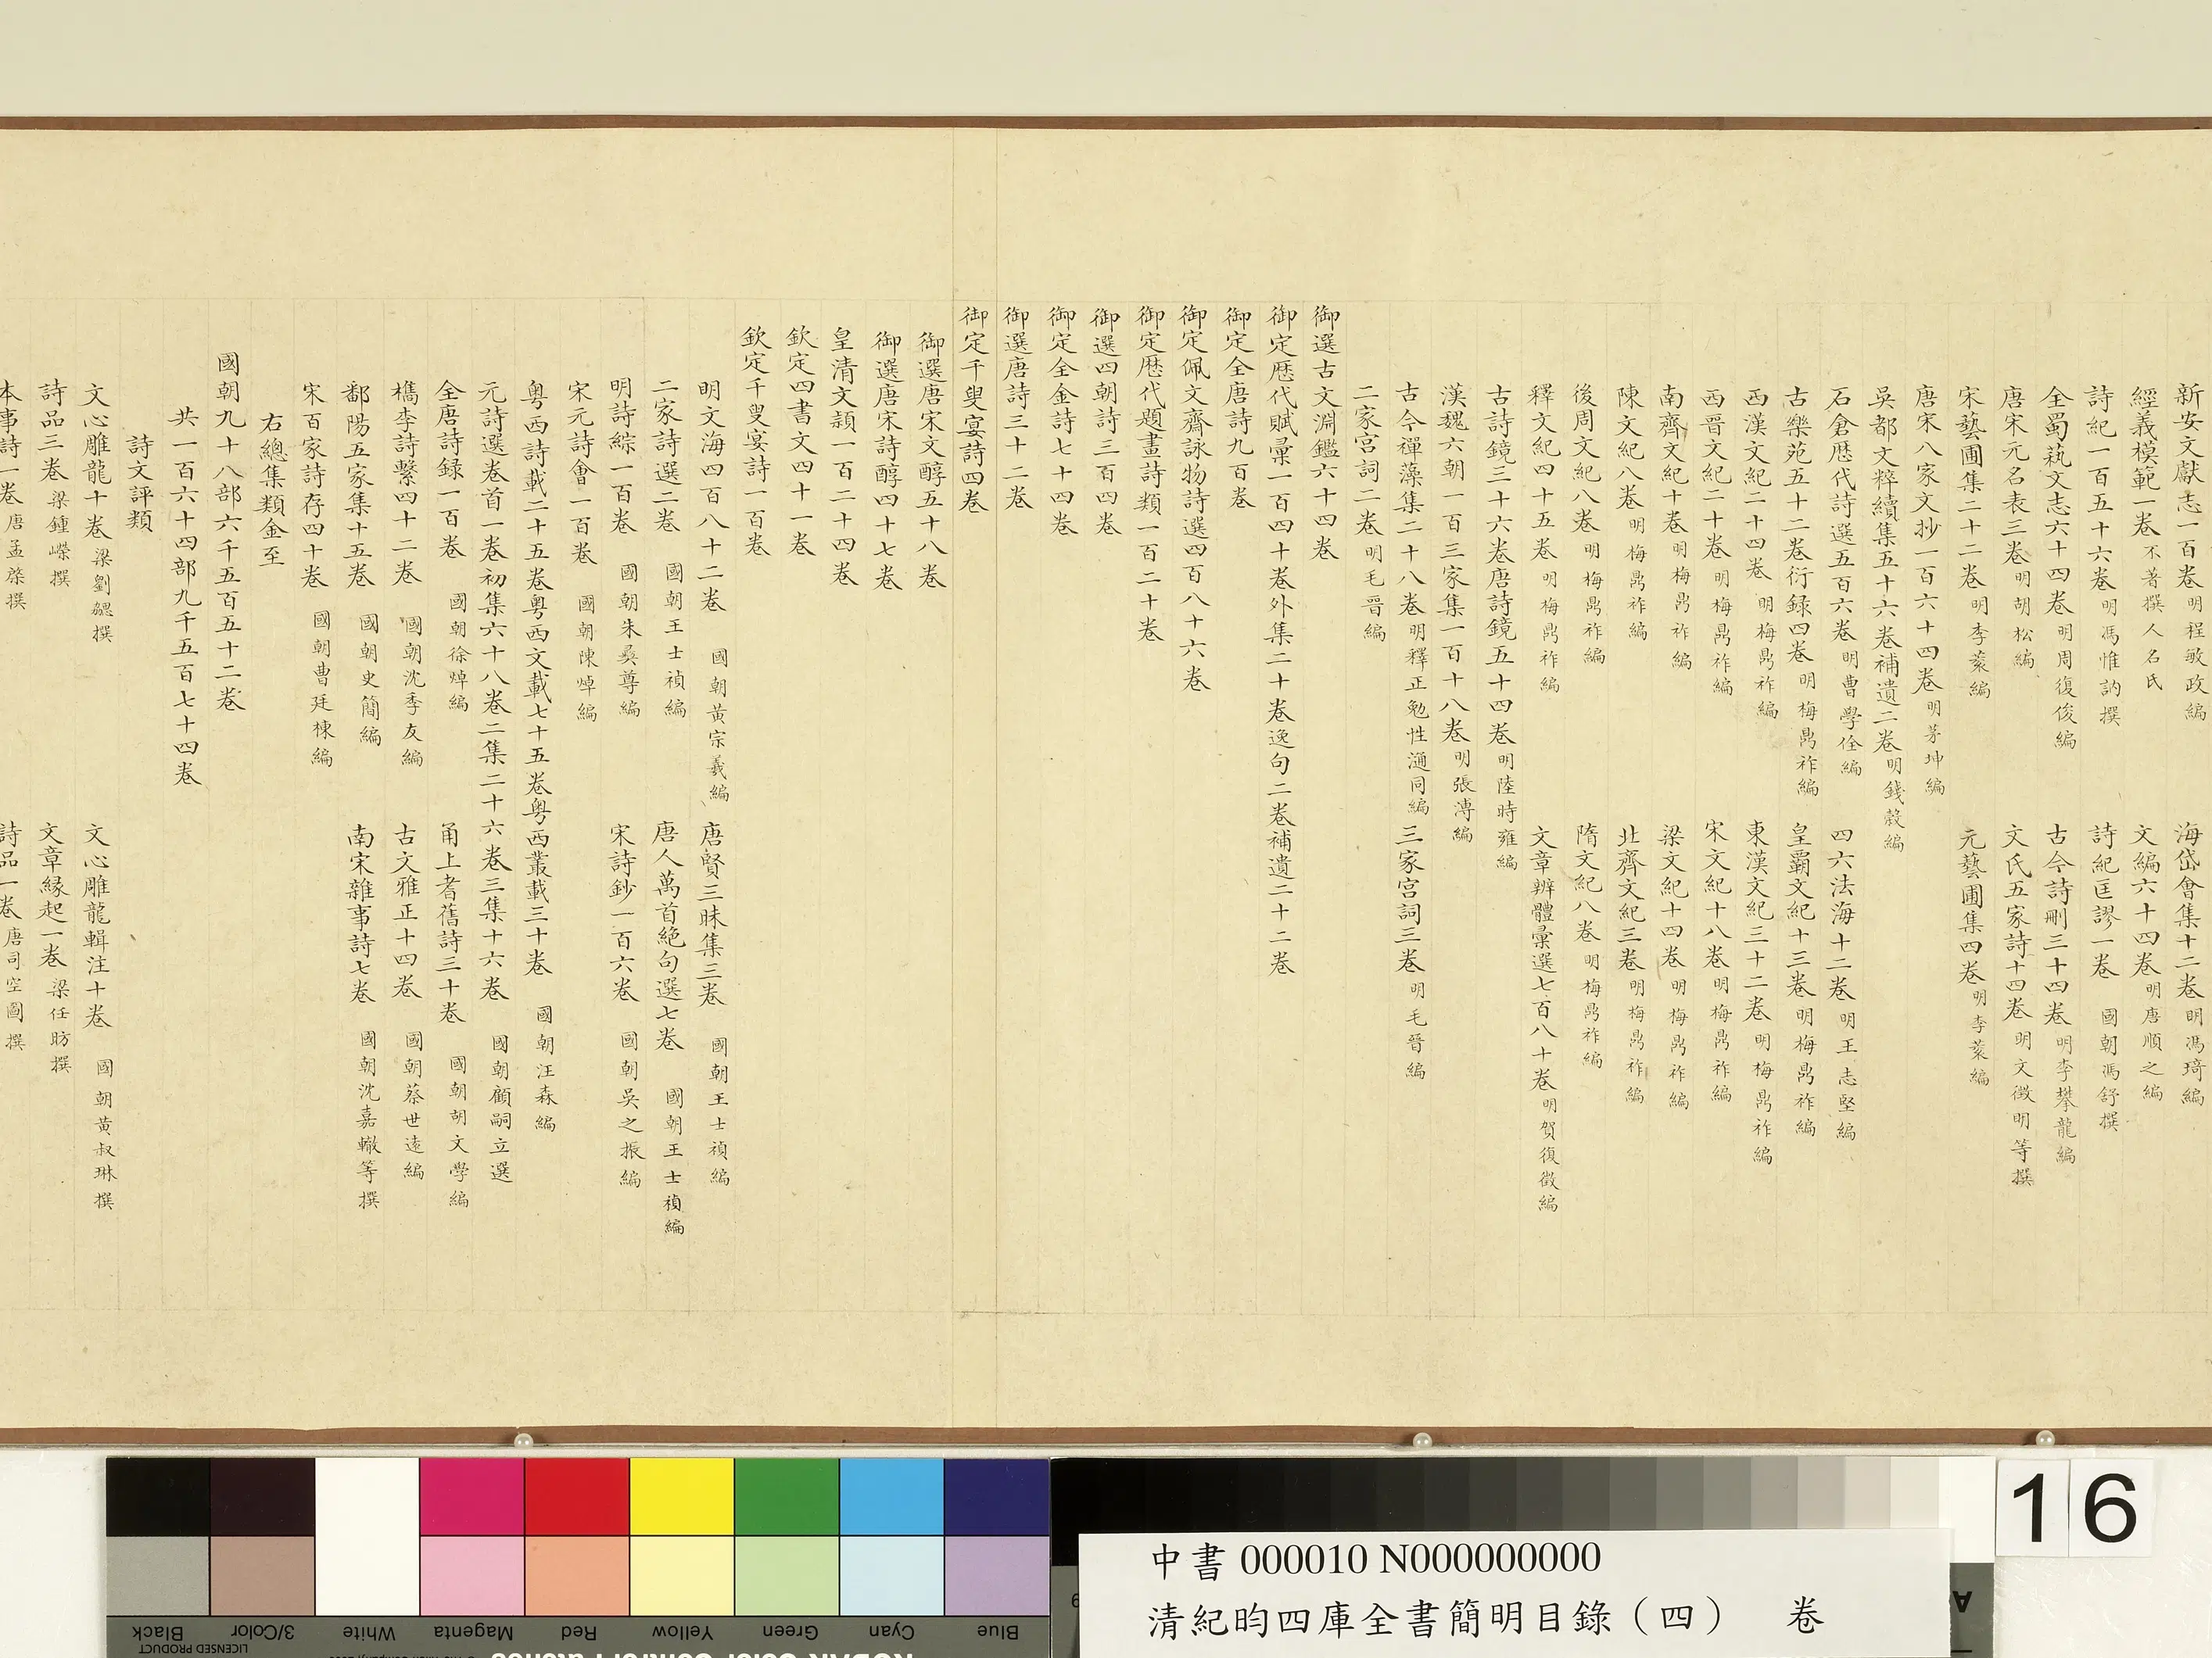 新安文獻志一百卷 明程敏政編 海岱會集十二卷 明馮琦編
經義模範一卷 不著撰人名氏 文編六十四卷 明唐順之編
詩紀一百五十六卷 明馮惟訥撰 詩紀匡謬一卷 國朝馮舒撰
全蜀蓺文志六十四卷 明周復俊編 古今詩刪三十四卷 明李攀龍編
唐宋元名表三卷 明胡松編 文氏五家詩十四卷 明文徵明等撰
宋藝圃集二十二卷 明李蓘編 元藝圃集四卷 明李蓘編
唐宋八家文抄一百六十四卷 明茅坤編
吳都文粹續集五十六卷補遺二卷 明錢榖編
石倉歴代詩選五百六卷 明曹學佺編 四六法海十二卷 明王志堅編
古樂苑五十二卷衍録四卷 明梅鼎祚編 皇霸文紀十三卷 明梅鼎祚編
西漢文紀二十四卷 明梅鼎祚編 東漢文紀三十二卷 明梅鼎祚編
西晉文紀二十卷 明梅鼎祚編 宋文紀十八卷 明梅鼎祚編
南齊文紀十卷 明梅鼎祚編 梁文紀十四卷 明梅鼎祚編
陳文紀八卷 明梅鼎祚編 北齊文紀三卷 明梅鼎祚編
後周文紀八卷 明梅鼎祚編 隋文紀八卷 明梅鼎祚編
釋文紀四十五卷 明梅鼎祚編 文章辨體彙選七百八十卷 明賀復徵編
古詩鏡三十六卷唐詩鏡五十四卷 明陸時雍編
漢魏六朝一百三家集一百十八卷 明張溥編
古今禪藻集二十八卷 明釋正勉性𣽂同編 三家宫詞三卷 明毛晉編
二家宫詞二卷 明毛晉編
御選古文淵鑑六十四卷
御定歴代賦彙一百四十卷外集二十卷逸句二卷補遺二十二卷
御定全唐詩九百卷
御定佩文齋詠物詩選四百八十六卷
御定歴代題畫詩類一百二十卷
御選四朝詩三百四卷
御定全金詩七十四卷
御選唐詩三十二卷
御定千叟宴詩四卷
御選唐宋文醇五十八卷
御選唐宋詩醇四十七卷
皇清文頴一百二十四卷
欽定四書文四十一卷
欽定千叟宴詩一百卷
明文海四百八十二卷 國朝黃宗羲編 唐賢三昧集三卷 國朝王士禎編
二家詩選二卷 國朝王士禎編 唐人萬首絶句選七卷 國朝王士禎編
明詩綜一百卷 國朝朱彝尊編 宋詩鈔一百六卷 國朝吳之振編
宋元詩會一百卷 國朝陳焯編
粤西詩載二十五卷粤西文載七十五卷粤西叢載三十卷 國朝汪森編
元詩選卷首一卷初集六十八卷二集二十六卷三集十六卷 國朝顧嗣立選
全唐詩録一百卷 國朝徐焯編 甬上耆舊詩三十卷 國朝胡文學編
檇李詩繫四十二卷 國朝沈季友編 古文雅正十四卷 國朝蔡世遠編
鄱陽五家集十五卷 國朝史簡編 南宋雜事詩七卷 國朝沈嘉轍等撰
宋百家詩存四十卷 國朝曹廷棟編
右總集類金至
國朝九十八部六千五百五十二卷
共一百六十四部九千五百七十四卷
詩文評類
文心雕龍十卷 梁劉勰撰 文心雕龍輯注十卷 國朝黃叔琳撰
詩品三卷 梁鍾嶸撰 文章緣起一卷 梁任昉撰
本事詩一卷 唐孟棨撰 詩品一卷 唐司空圖撰
16
中書 000010 N000000000
清紀昀四庫全書簡明目錄（四） 卷
Black 3/Color White Magenta Red Yellow Green Cyan Blue
LICENSED PRODUCT